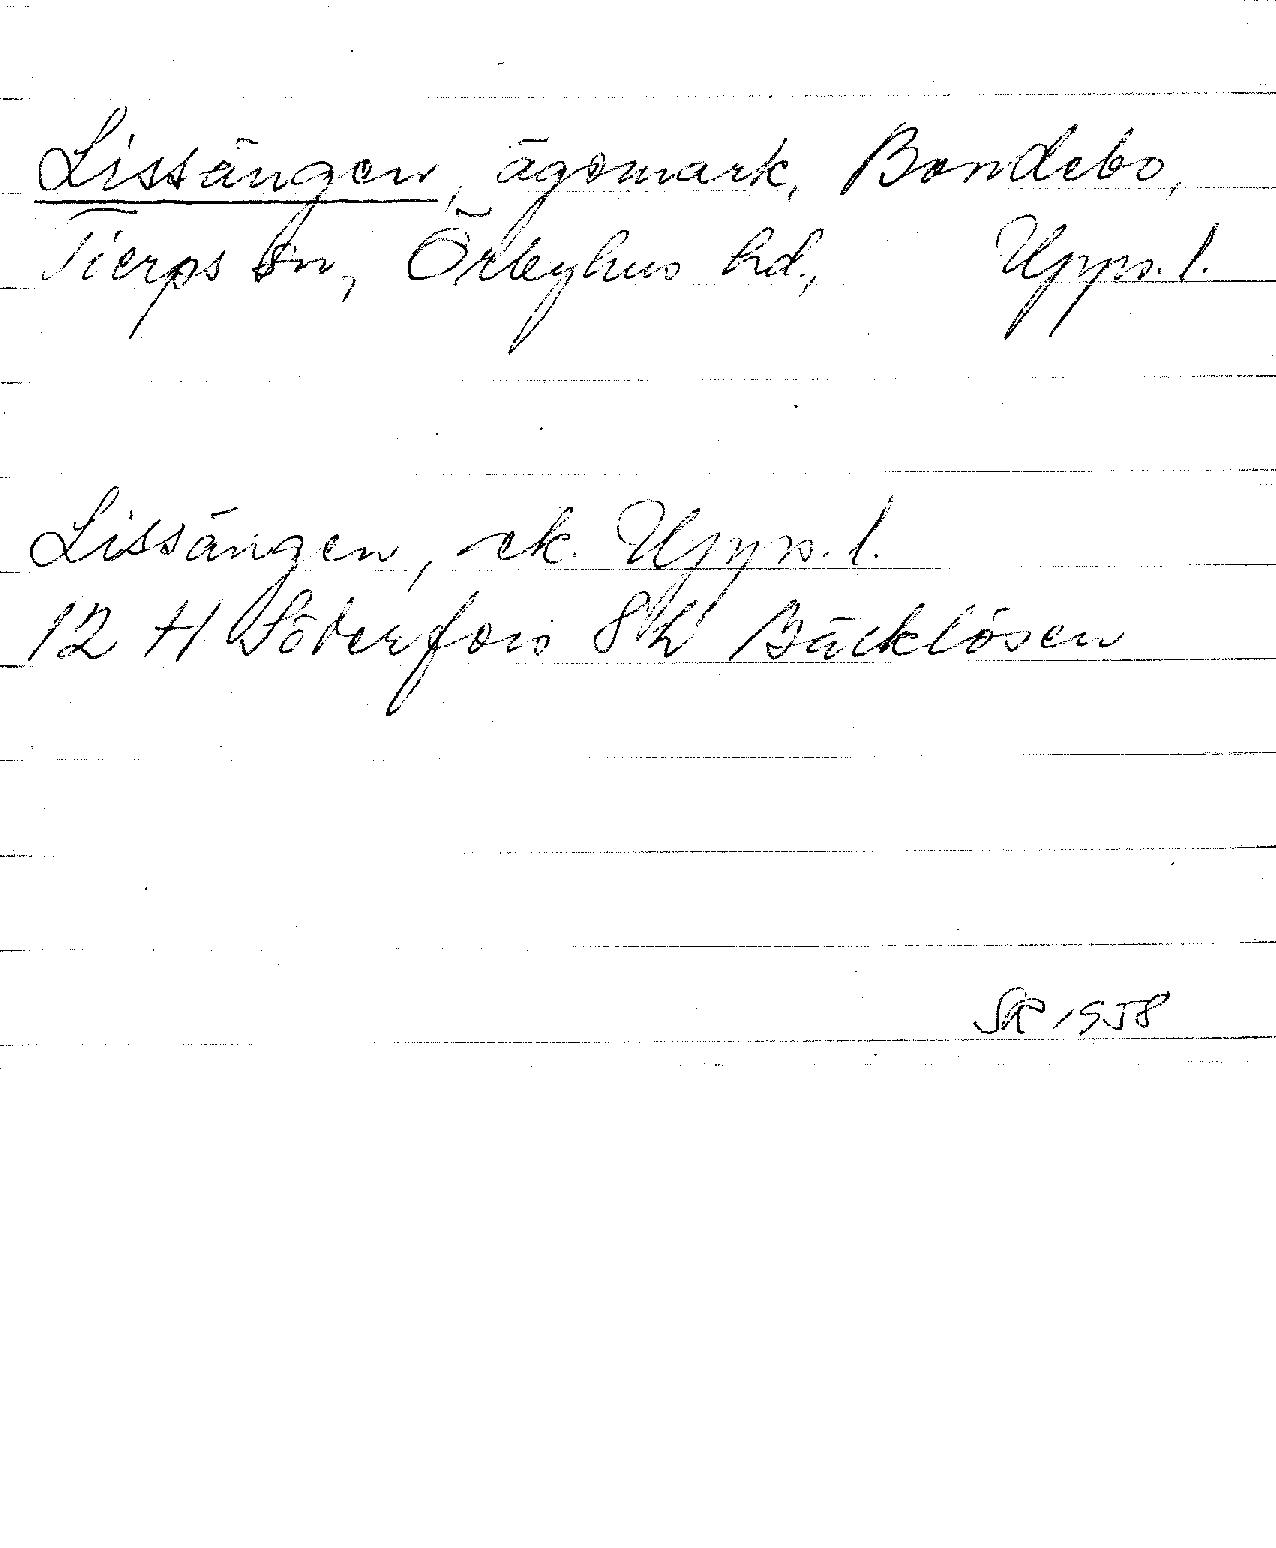 Lissängen, ägomark, Bondebo,
Tierps sn, Örbyhus hd, Upps. l.
Lissängen, ek. Upps. l.
12 H Söderfors 8h Bäcklösen
1958